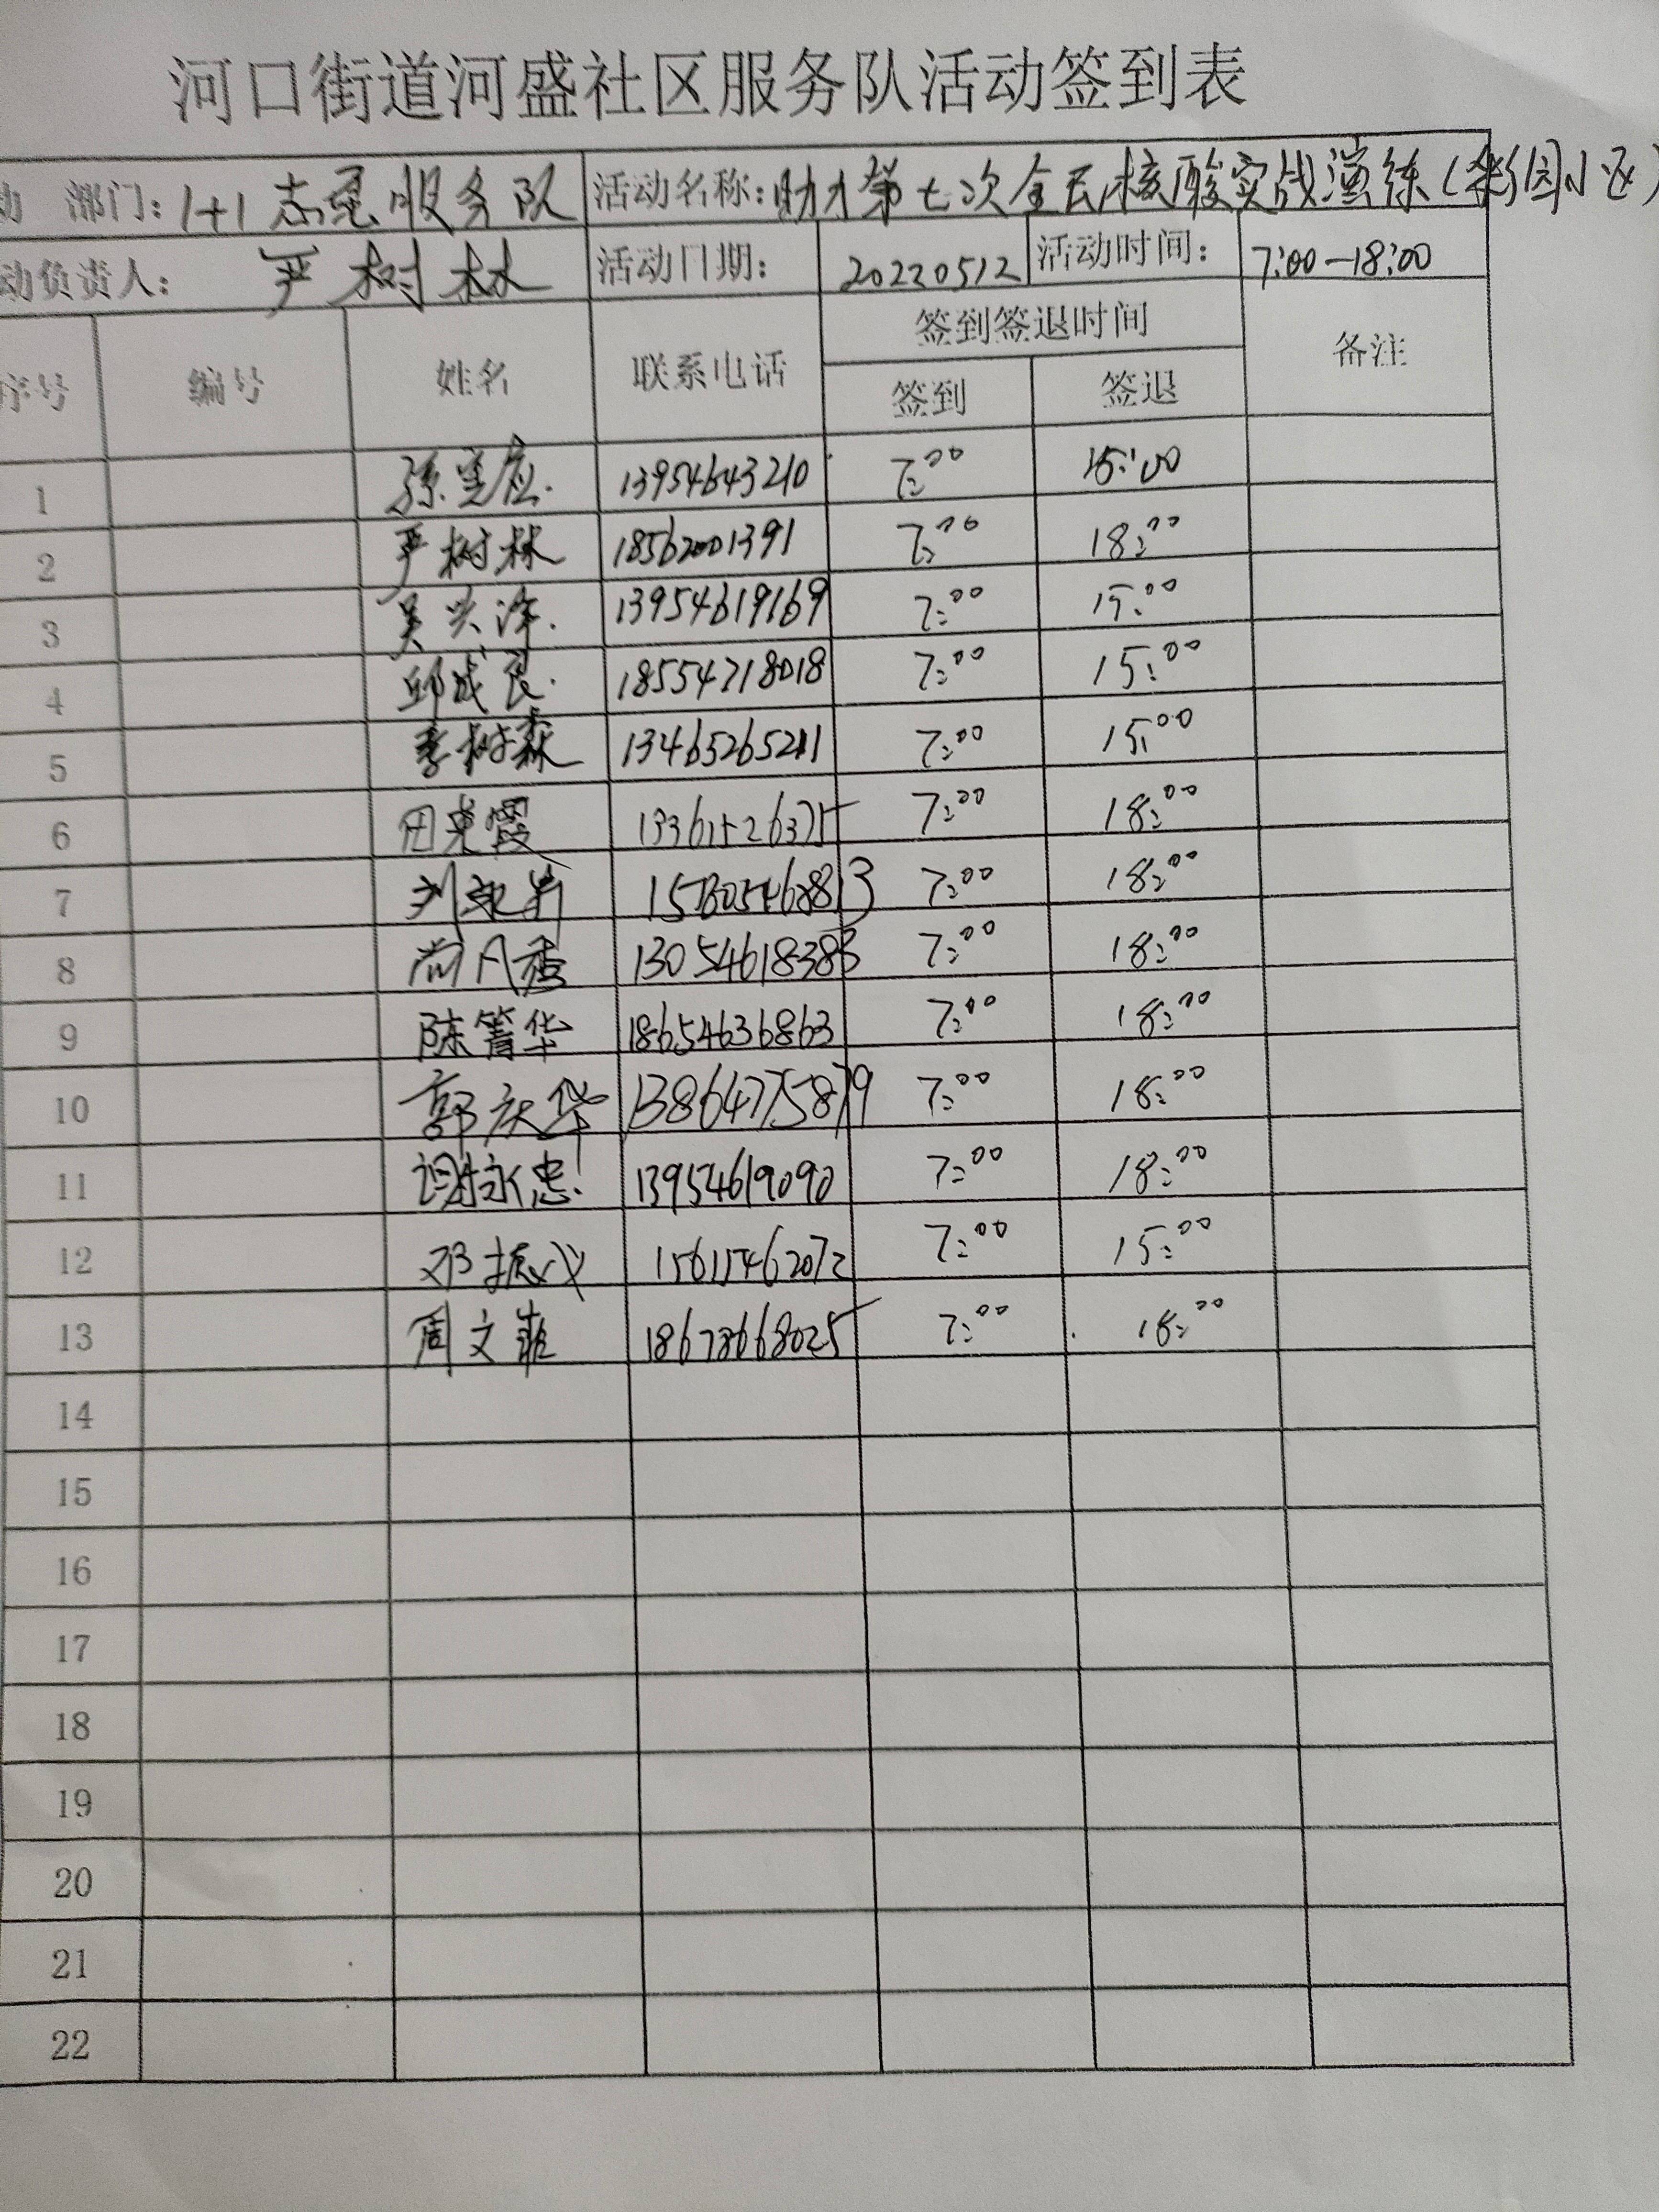 河口街道河盛社区服务队活动签到表
动 部门：1+1志愿服务队 活动名称：助力第七次全民核酸实战演练（彩园小区）
动负责人： 严树林 活动日期： 20220512 活动时间： 7:00-18:00
序号 编号 姓名 联系电话 签到签退时间 备注
签到 签退
1 13954643210 7:00 15:00
2 严树林 18562001391 7:00 18:00
3 吴兴 13954619169 7:00 15:00
4 邱成良 18554718018 7:00 15:00
5 李树森 13465265211 7:00 15:00
6 田霞 13361526375 7:00 18:00
7 刘 7:00 18:00
8 尚凡秀 13054618383 7:00 18:00
9 陈箐华 18654636863 7:00 18:00
10 郭庆华 13864775879 7:00 18:00
11 谢永忠 13954619090 7:00 18:00
12 邓振义 15615462072 7:00 15:00
13 周文菲 18678668025 7:00 18:00
14
15
16
17
18
19
20
21
22